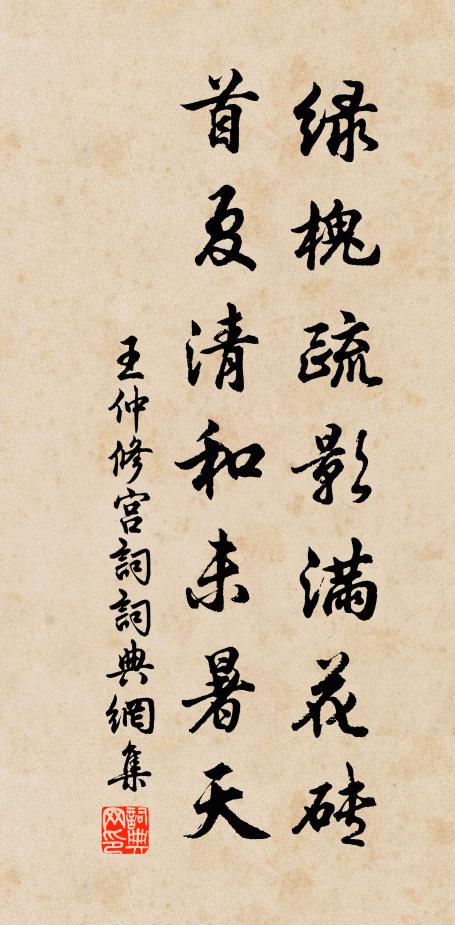 绿槐疏影满花砖
首夏清和未暑天
王仲修宫詞詞典網集
詞典网印